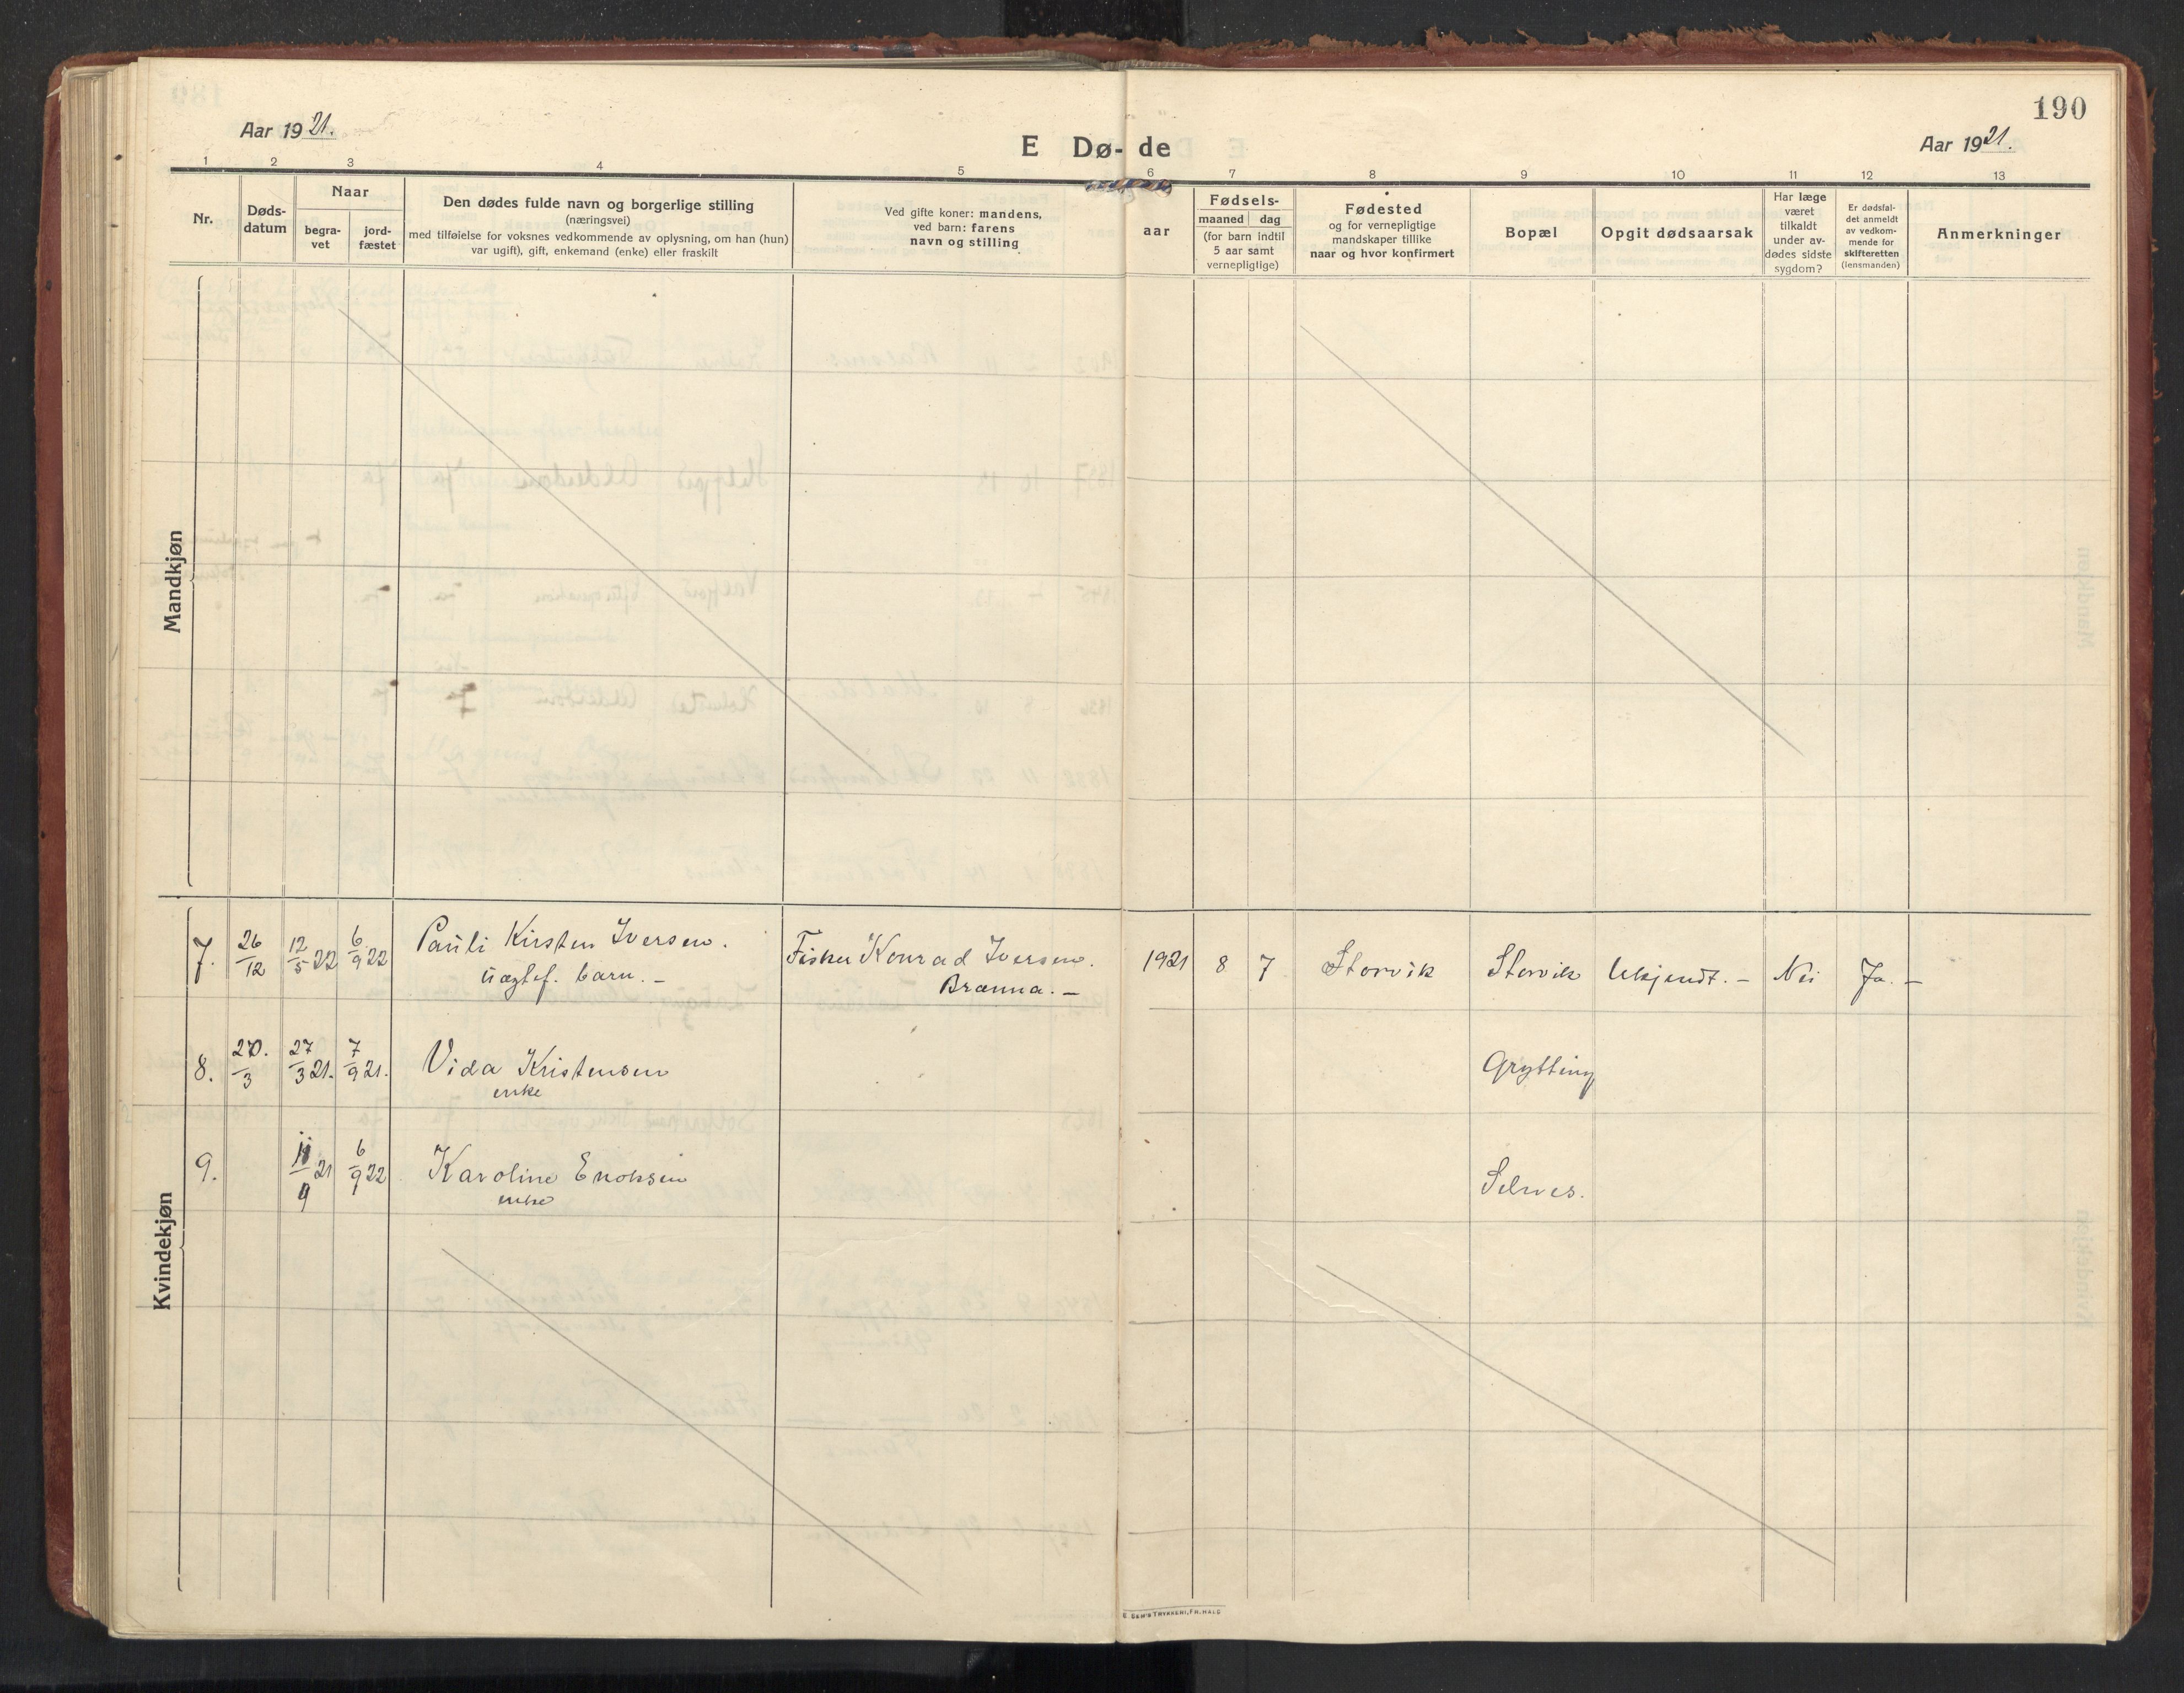 190
Aar 1921.
E Dø-de
Aar 1921.
1 2 3 4 5 6 7 8 9 10 11 12 13
Nr.
Døds-
datum
Naar
begra-
vet
jord-
fæstet
Den dødes fulde navn og borgerlige stilling
(næringsvei)
med tilføielse for voksnes vedkommende av oplysning, om han (hun)
var ugift), gift, enkemand (enke) eller fraskilt
Ved gifte koner: mandens,
ved barn: farens
navn og stilling
aar
Fødsels-
maaned dag
(for barn indtil
5 aar samt
vernepligtige)
Fødested
og for vernepligtige
mandskaper tillike
naar og hvor konfirmert
Bopæl
Opgit dødsaarsak
Har læge
været
tilkaldt
under av-
dødes sidste
sygdom?
Er dødsfal-
det anmeldt
av vedkom-
mende for
skifteretten
(lensmanden)
Anmerkninger
Mandkjøn
Kvindekjøn
7. 26/12 12/5 22 6/9 22 Pauli Kirsten Iversen. Fisker Konrad Iversen. 1921 8 7 Storvik Storvik Ukjendt. – Nei Ja. –
uægtef. barn. – Brænna. –
8. 20./3 27/3 21. 7/9 21. Vida Kristensen Grytting
enke
9. 11/9 21 6/9 22 Karoline Enoksen Selnes.
enke
E. SEM'S TRYKKERI, FR.HALD